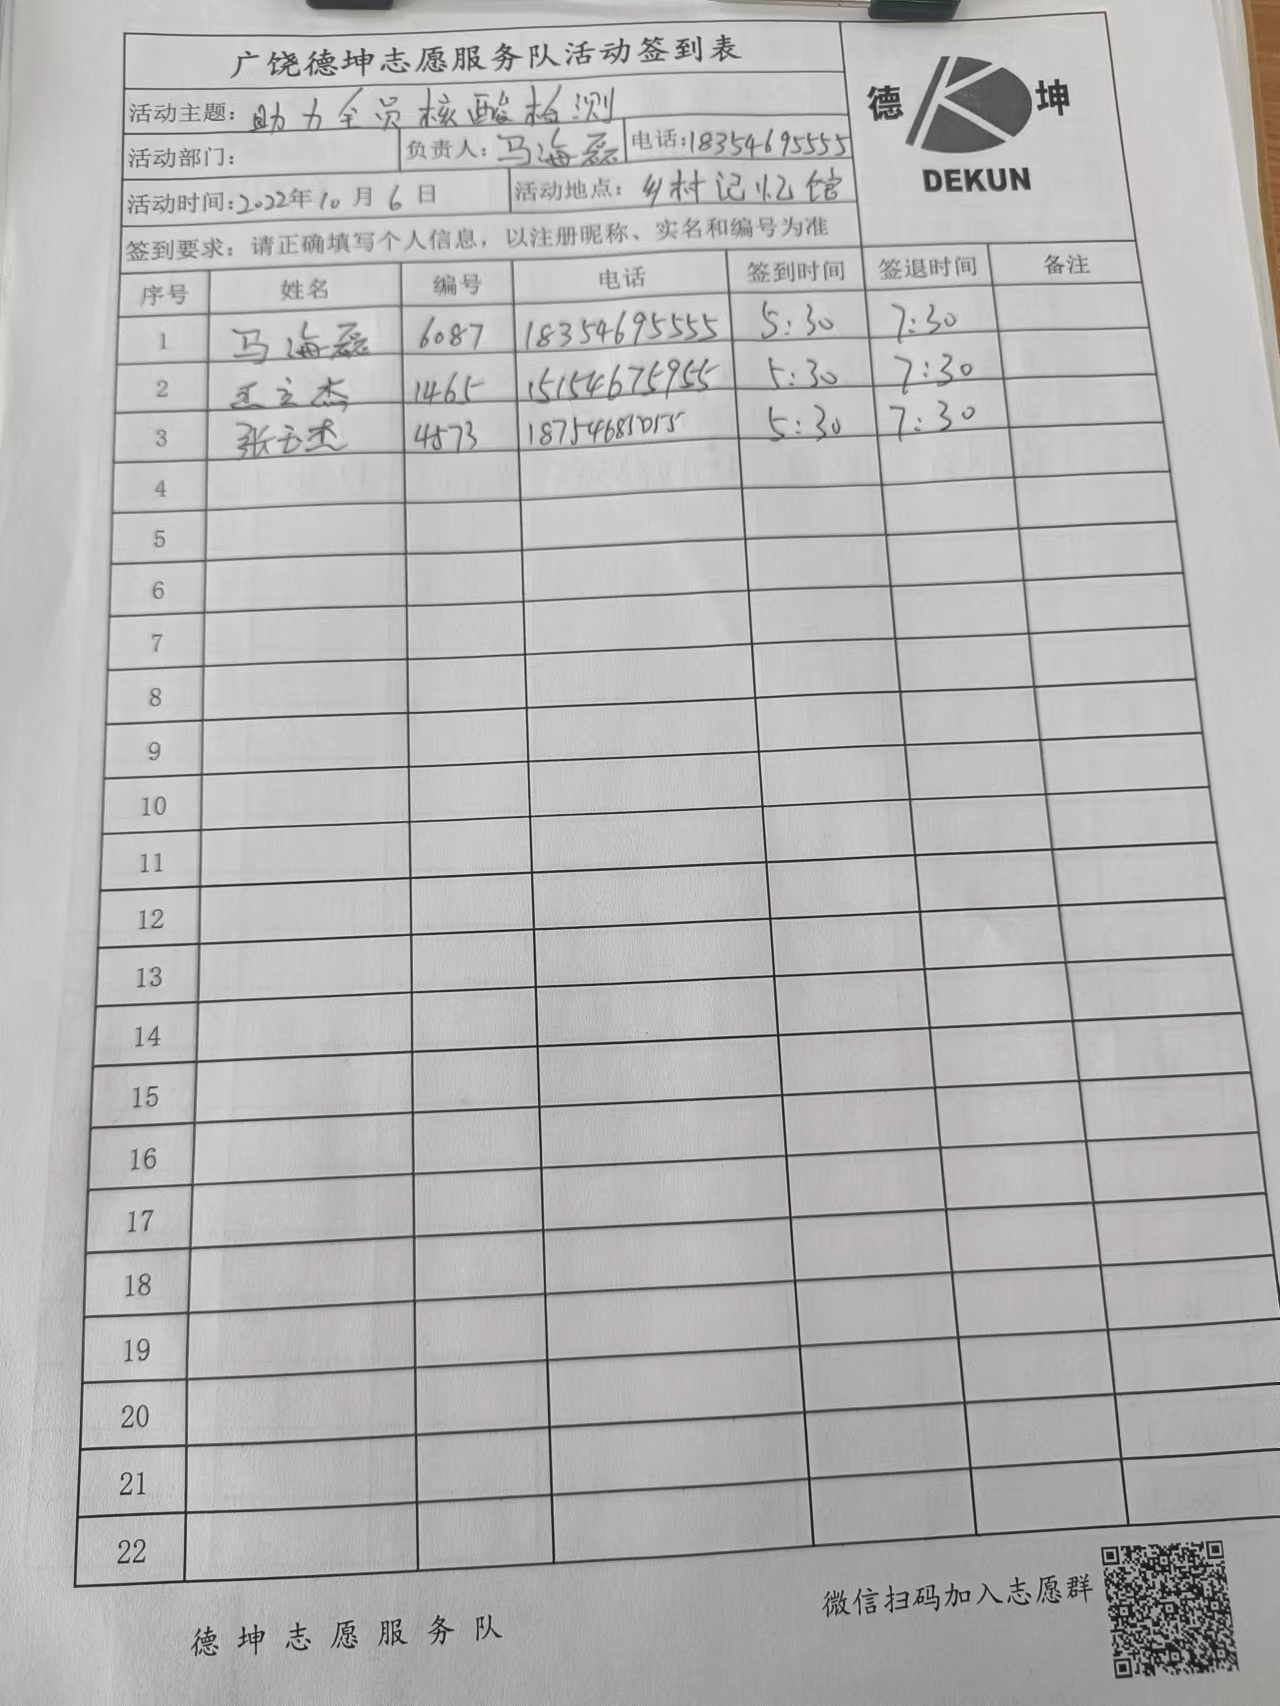 广饶德坤志愿服务队活动签到表
德 坤
DEKUN
活动主题：助力全员核酸检测
活动部门： 负责人：马海磊 电话：18354695555
活动时间：2022年10月6日 活动地点：乡村记忆馆
签到要求：请正确填写个人信息，以注册昵称、实名和编号为准
序号 姓名 编号 电话 签到时间 签退时间 备注
1 马海磊 6087 18354695555 5:30 7:30
2 王立杰 1465 15154675955 5:30 7:30
3 张 杰 4573 5:30 7:30
4
5
6
7
8
9
10
11
12
13
14
15
16
17
18
19
20
21
22
德坤志愿服务队
微信扫码加入志愿群